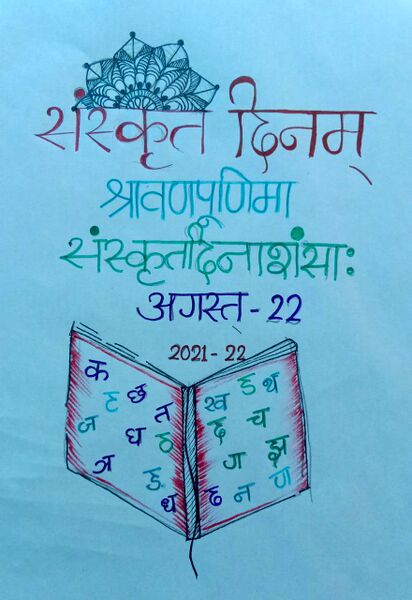 संस्कृत दिनम्
श्रावणपूर्णिमा
संस्कृतदिनाशंसाः
अगस्त् - 22
2021 - 22
क
छ त
ज घ ठ
ञ ध
ख ङ थ
च
ग झ
न ण